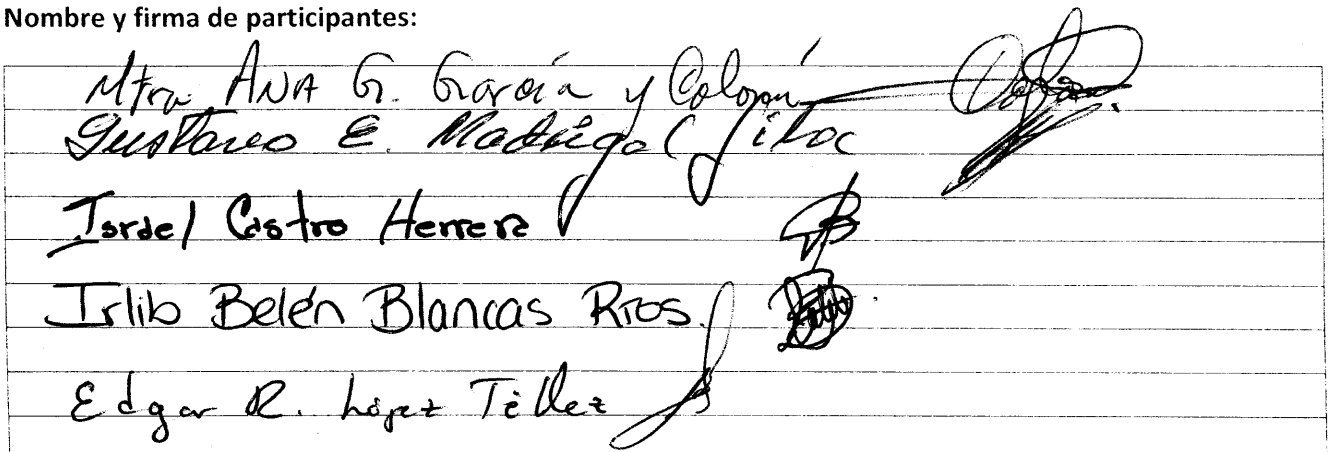 Nombre y firma de participantes:
Mtra. ANA G. García y Colomé
Gustavo E. Madrigal
Israel Castro Herrera
Irlib Belén Blancas Ríos.
Edgar R. López Téllez